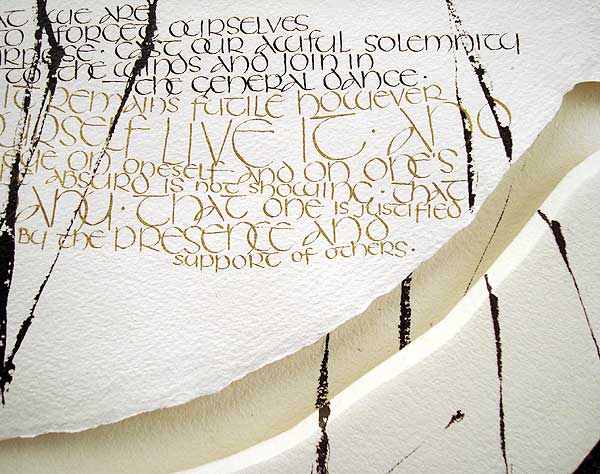 AT WE ARE
TO FORGET OURSELVES
URPOSE. CAST OUR AWFUL SOLEMNITY
TO THE WINDS AND JOIN IN
THE GENERAL DANCE.
IT REMAINS FUTILE HOWEVER
URSELF LIVE IT. AND
ON ONESELF AND ON ONE'S
ABSURD IS NOT SHOWING. THAT
ANU. THAT ONE IS JUSTIFIED
BY THE PRESENCE AND
SUPPORT OF OTHERS.